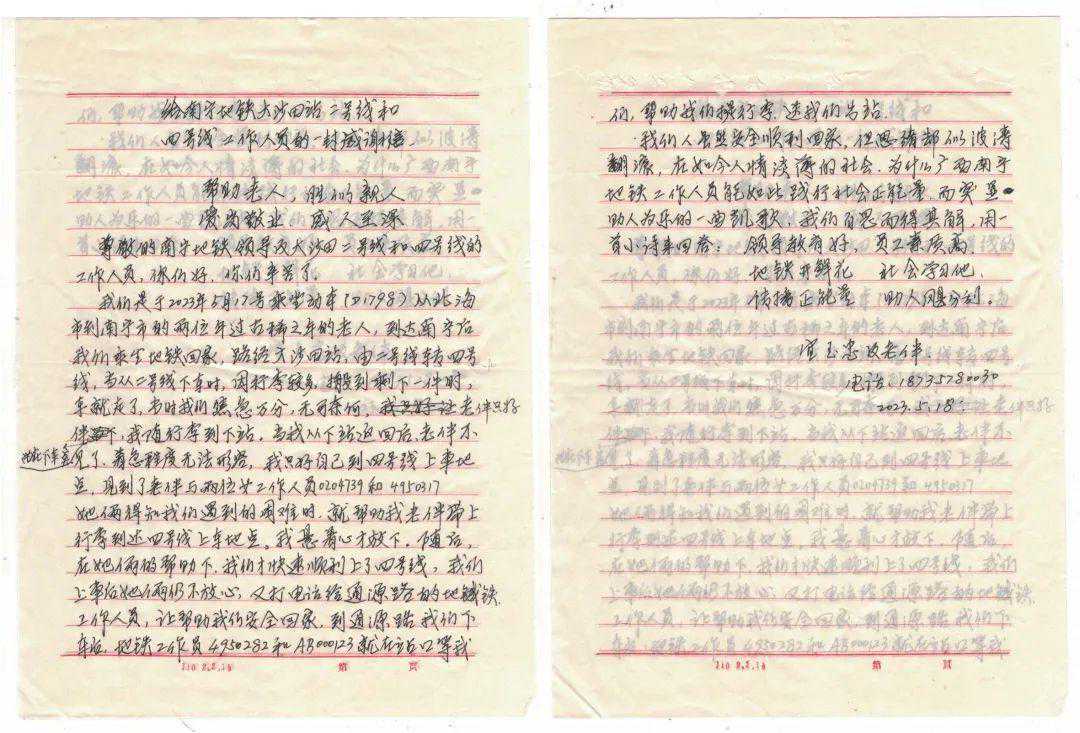 给南宁地铁大沙田站二号线和
四号线工作人员的一封感谢信
帮助老人,胜似亲人
爱岗敬业,感人至深
尊敬的南宁地铁领导及大沙田二号线和四号线的
工作人员,你们好,你们辛苦了。
我们是于2023年5月17号乘坐动车(D1798)从北海
市到南宁市的两位年过古稀之年的老人,到达南宁后
我们乘坐地铁回家,路经大沙田站,由二号线转四号
线,当从二号线下车时,因行李较多,搬到剩下一件时,
车就走了,当时我们焦急万分,无可奈何,老伴只好
下,我随行李到下站,当我从下站返回后,老伴不
见了,着急程度无法形容,我只好自己到四号线上车地
点,见到了老伴与两位女工作人员0204739和4950317
她俩得知我们遇到的困难时,就帮助我老伴带上
行李到达四号线上车地点。我悬着心才放下。随后,
在她俩的帮助下,我们才快速顺利上了四号线,我们
上车后她俩仍不放心,又打电话给通源路站的地铁
工作人员,让帮助我们安全回家,到通源路我们下
车后,地铁工作员4950282和AB000123就在站口等我
210 8.8.16 第 页
们,帮助我们提行李,送我们出站。
我们人虽然安全顺利回家,但思绪却似波涛
翻滚,在如今人情淡薄的社会,为什么广西南宁
地铁工作人员能如此践行社会正能量,而奏 是
助人为乐的一曲凯歌,我们百思而得其解,用一
首小诗来回答: 领导教育好, 员工素质高,
地铁开鲜花 社会学习他,
传播正能量 助人 分到。
玉忠及老伴
电话:18735780030
2023.5.18
210 8.8.16 第 页